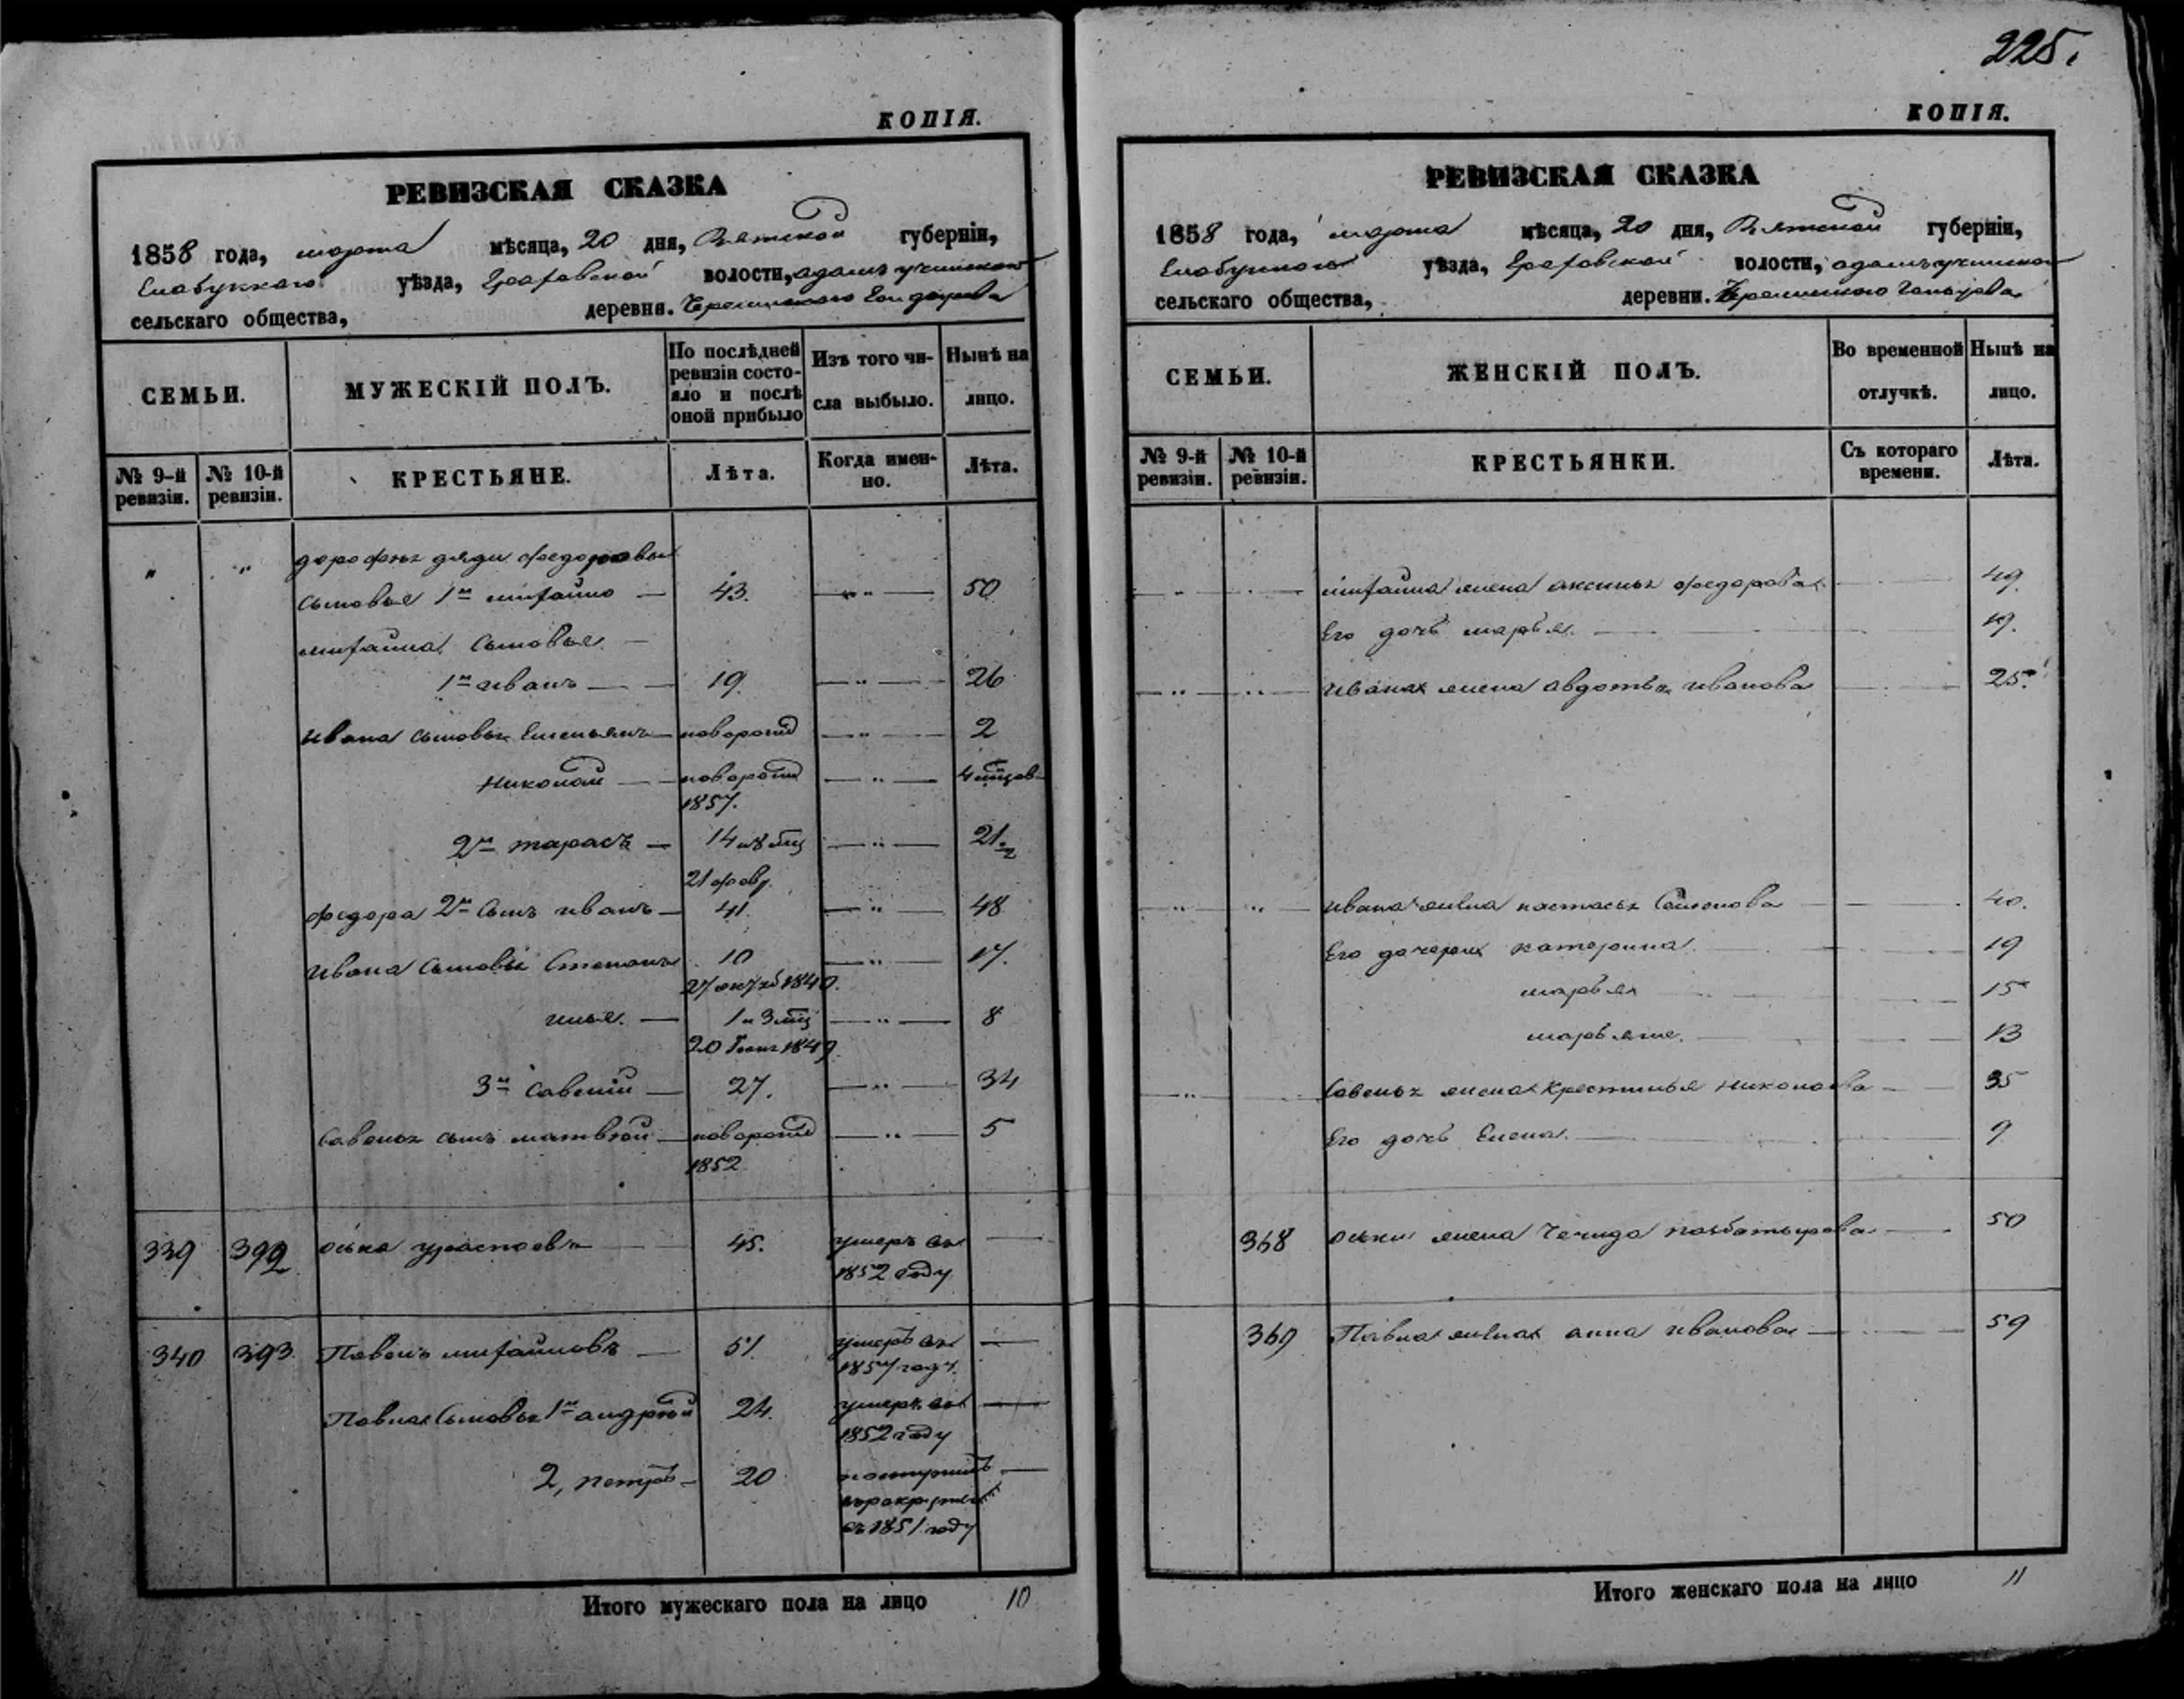 225.
КОПІЯ.
РЕВИЗСКАЯ СКАЗКА
1858 года, марта мѣсяца, 20 дня, Вятской губерніи,
Елабужскаго уѣзда, волости,
сельскаго общества, деревни.
СЕМЬИ.
МУЖЕСКІЙ ПОЛЪ.
По послѣдней ревизіи состояло и послѣ оной прибыло
Изъ того числа выбыло.
Нынѣ на лицо.
№ 9-й ревизіи.
№ 10-й ревизіи.
КРЕСТЬЯНЕ.
Лѣта.
Когда именно.
Лѣта.
" " дорофея дяди федоровы
сыновья 1й михайло — 43. — " — 50
михайла сыновья —
1й иванъ — 19. — " — 26
ивана сыновья Емельянъ — новорожд — " — 2
николай — новорожд — " —
1857.
2й тарасъ — 14 — " — 21
федора 2й сынъ иванъ — 41. — " — 48
ивана сыновья Степанъ 10 — " — 17.
илья. — 1 и 3 — " — 8
3й савелій — 27. — " — 34
савелья сынъ матвѣй — новорожд — " — 5
1852
339 392 оська — 45. умеръ въ —
1852 году
340 393 Павелъ михайловъ — 51. умеръ въ —
1857 году.
Павла сыновья 1й андрей 24. умеръ въ —
1852 году
2, петръ — 20 —
въ 1851 году
Итого мужескаго пола на лицо 10
КОПІЯ.
РЕВИЗСКАЯ СКАЗКА
1858 года, марта мѣсяца, 20 дня, Вятской губерніи,
Елабужскаго уѣзда, волости,
сельскаго общества, деревни.
СЕМЬИ.
ЖЕНСКІЙ ПОЛЪ.
Во временной отлучкѣ.
Нынѣ на лицо.
№ 9-й ревизіи.
№ 10-й ревизіи.
КРЕСТЬЯНКИ.
Съ котораго времени.
Лѣта.
михайла жена аксинья федорова 49.
Его дочь марья. 19.
ивана жена авдотья иванова 25.
ивана жена настасья Семенова 40.
Его дочери катерина. 19
марья 15
13
савелья жена крестинья николаева 35
Его дочь Елена. 9
368 оськи жена 50
369 Павла жена анна иванова 59
Итого женскаго пола на лицо 11